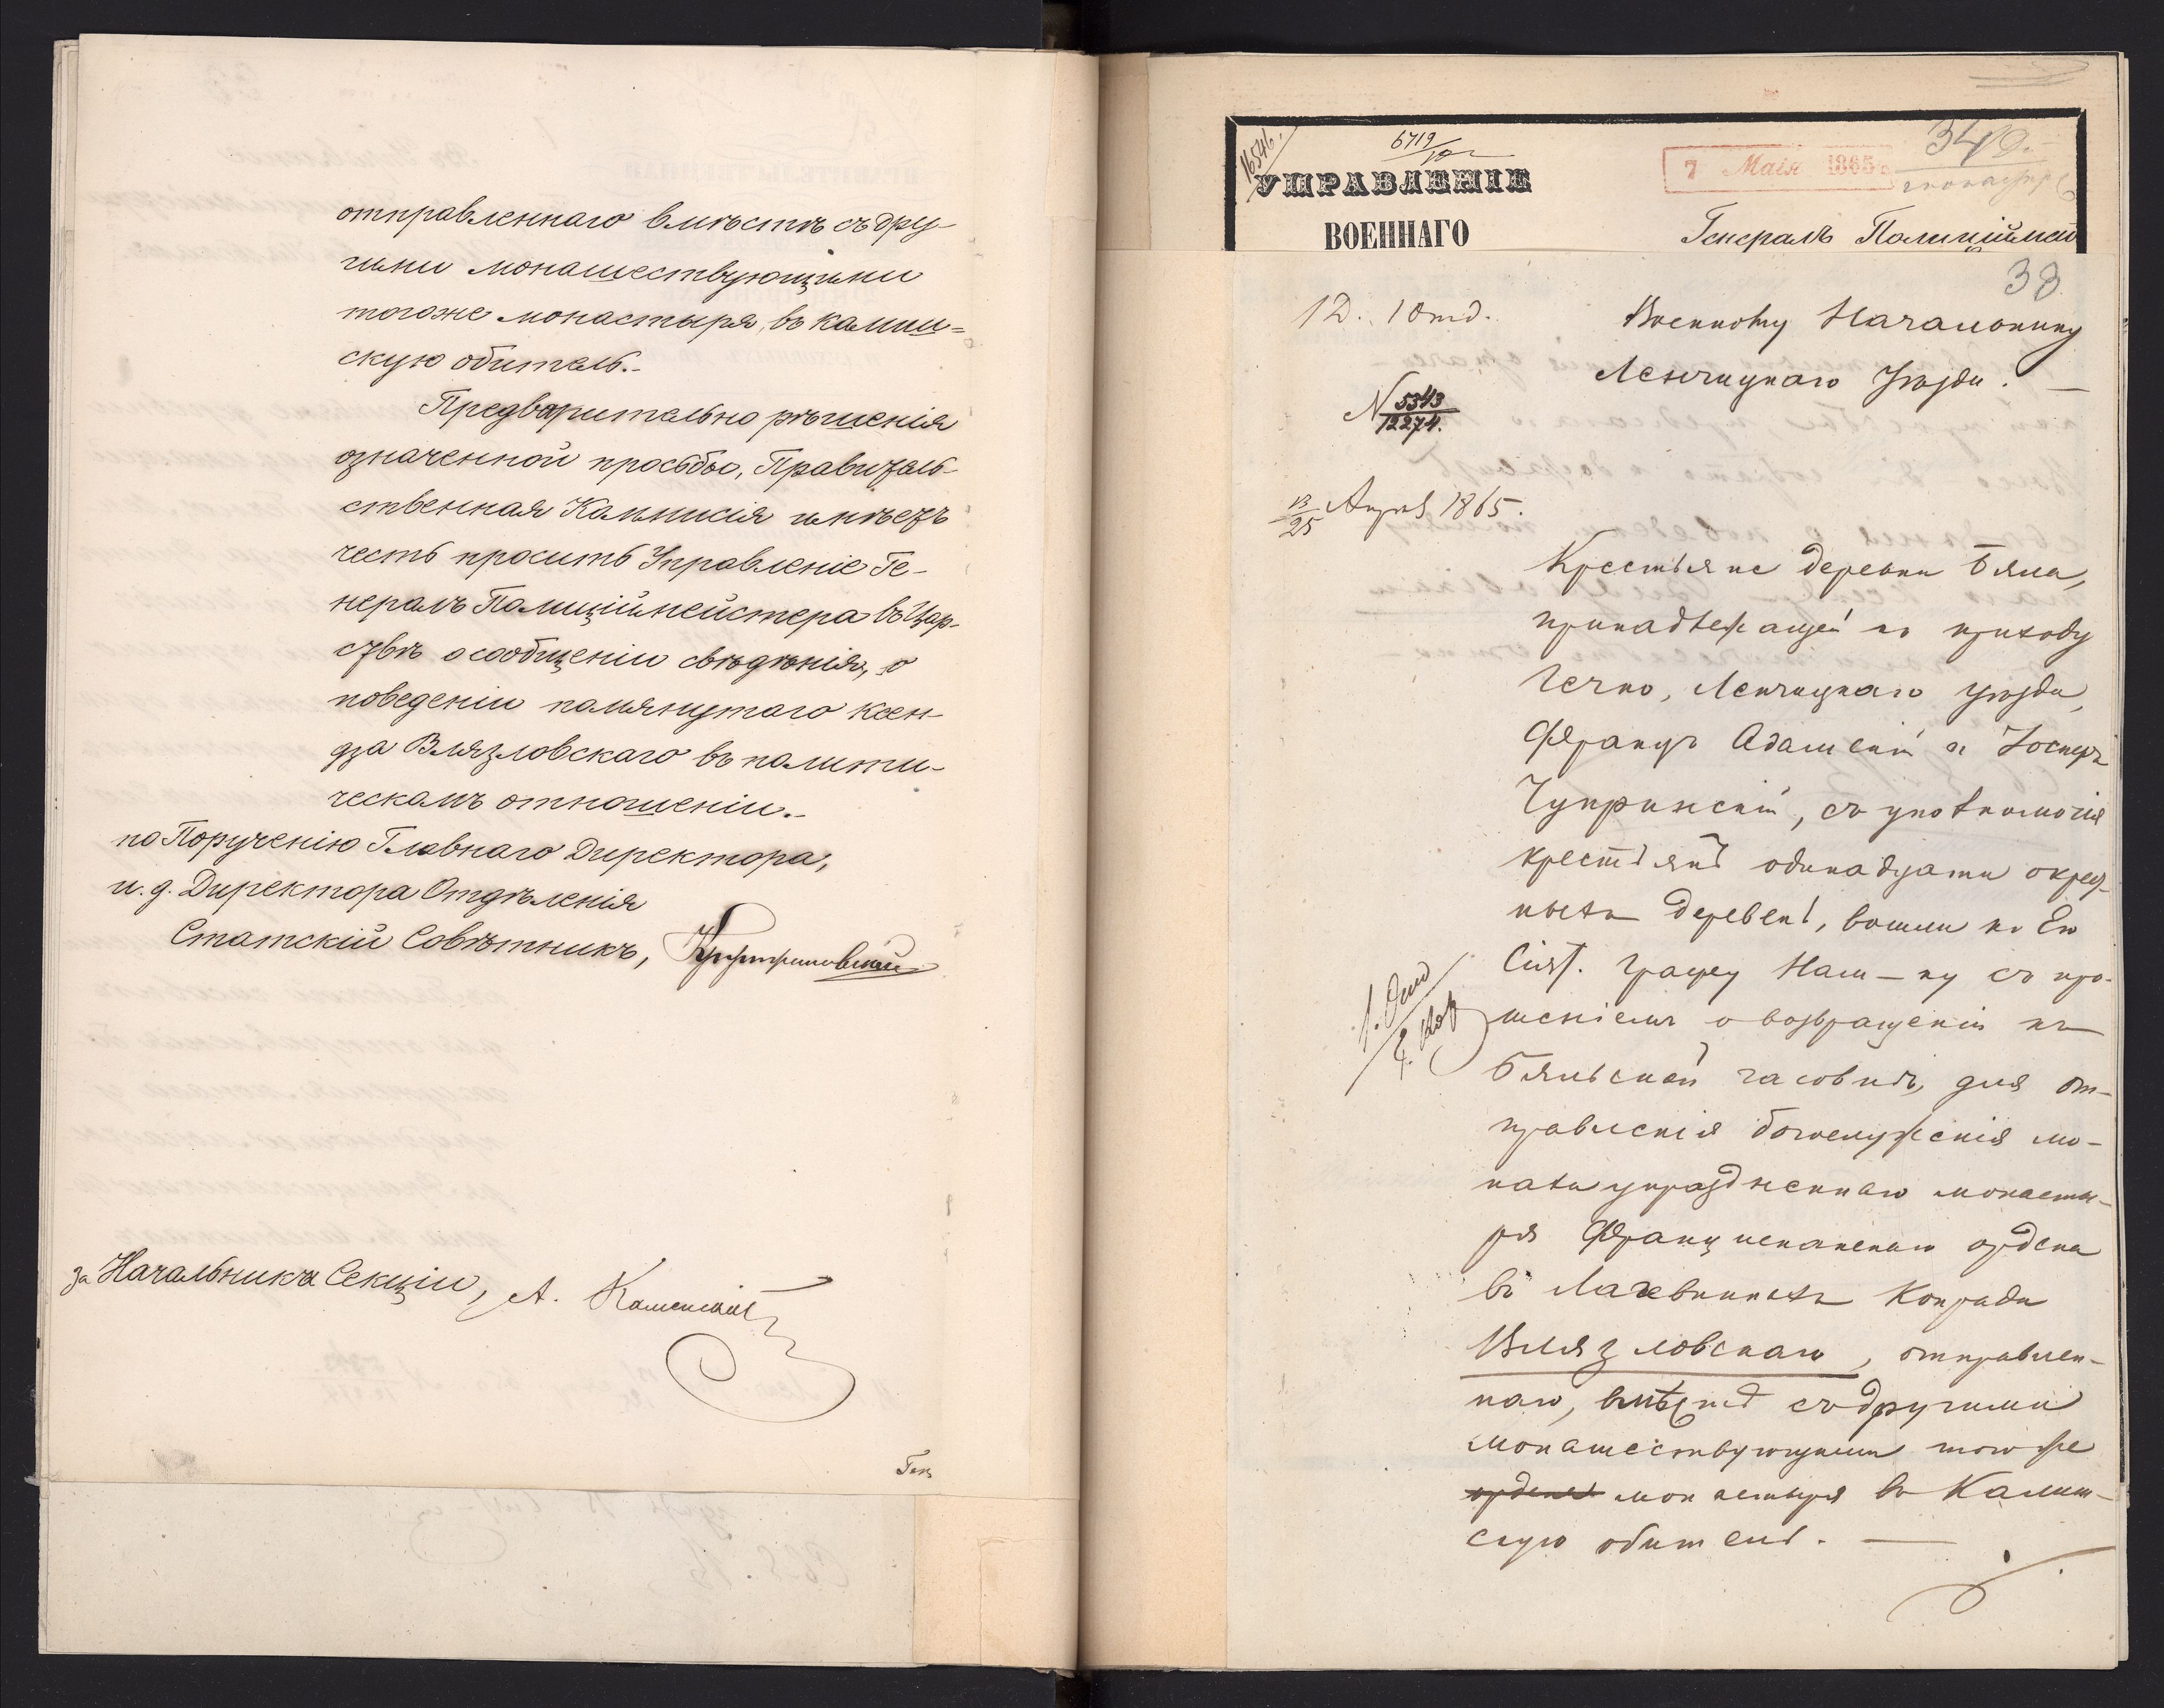 отправленнаго вмѣстѣ съ дру-
гими монашествующими
тогоже монастыря, въ калиш-
скую обитель.-
Предварительно рѣшенія
означенной просьбы, Правитель-
ственная Коммисія имѣетъ
честь просить Управленіе Ге-
нералъ Полиціймейстера въ Цар-
ствѣ о сообщеніи свѣдѣнія, о
поведеніи помянутаго ксен-
дза Влязловскаго въ полити-
ческомъ отношеніи.-
по Порученію Главнаго Директора,
и. д. Директора Отдѣленія
Статскій Совѣтникъ,
за Начальника Секціи, А. Каменскій
Ген
16546.
6719
УПРАВЛЕНІЕ
ВОЕННАГО
7 Маія 1865
Генералъ Полиціймей
33
1 Д. 1 отд.
Военному Начальнику
Ленчицкаго Уѣзда. —
N 5343
12274.
13
25 Апрѣл 1865.
Крестьяне деревни Бяла,
принадлежащей къ приходу
Гечно, Ленчицкаго уѣзда,
Францъ Адамскій и Іосифъ
Чупринскій, съ уполномочія
крестьянъ одинадцати окрест-
ныхъ деревень, вошли къ Его
Сіят. Графу Нам-ку съ про-
шеніемъ о возвращеніи къ
Бяльской часовнѣ, для от-
правленія богослуженія мо-
наха упраздненнаго монасты-
ря Францисканскаго ордена
въ Лагевникахъ Конрада
Влязловскаго, отправлен-
наго, вмѣстѣ съ другими
монашествующими тогоже
ордена монастыря въ Калиш-
скую обитель. —